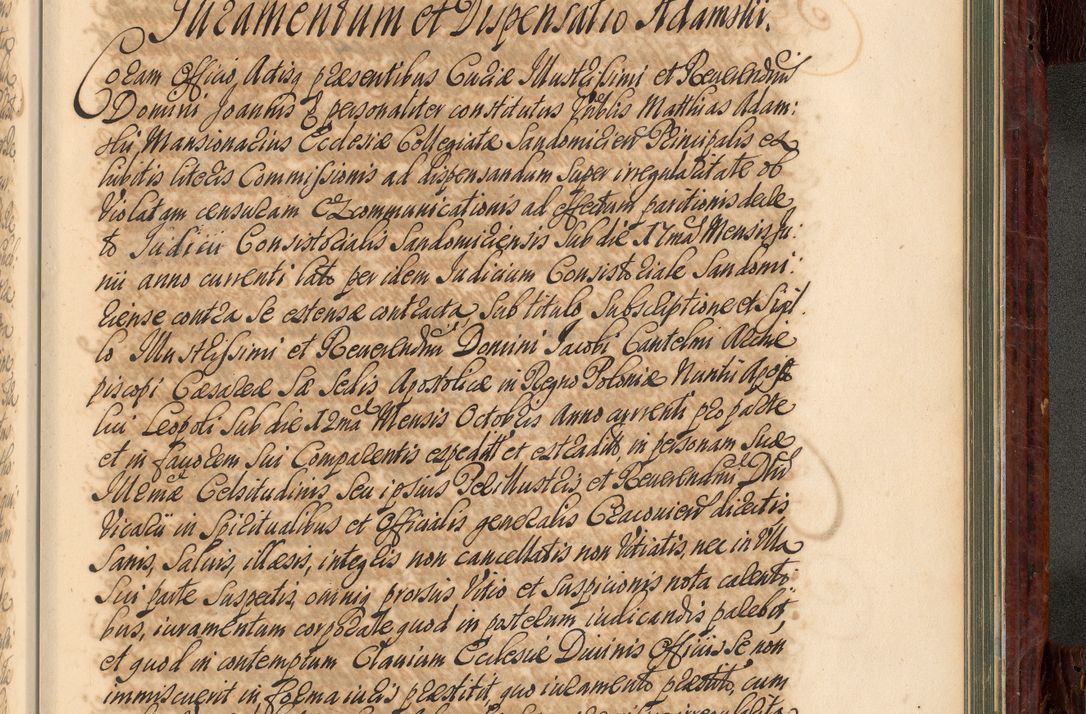 Juramentum et Dispensatio Adamski.
Coram Officio, Actisq præsentibus Curiæ Illustrissimi et Reverendmi
Domini Joannis personaliter constitutus Matthias Adam:
ski Mansionarius Ecclesiæ Collegiatæ Sandomirien Principalis ex
hibitis literis Commissionis ad dispensandum super irregularitate ob
Violatam censuram Excommunicationis ad effectum paritionis decre
to Judicii Consistorialis Sandomiriensis sub die 17ma Mensis Ju:
nii anno currenti lato per idem Judicium Consistoriale Sandomi:
riense contra se extensæ contracta, sub titulo, subscriptione et Sigil
lo Illustrissimi et Reverendmi Domini Jacobi Cantelmi Archie
piscopi Cæsareæ Sæ Sedis Apostolicæ in Regno Poloniæ Nuntii Apost
lici Leopoli sub die 12ma Mensis Octobris Anno currenti pro parte
et in favorem sui Comparentis expedit et extradit, in personam suæ
Illmæ Celsitudinis seu ipsius Perillustris et Reverendmi Dni
Vicarii in Spiritualibus et Officialis generalis Cracovien directis
Sanis, Salvis, illæsis, integris non cancellatis non Vitiatis, nec in Ulla
sui parte suspectis, omniq prorsus Vitio et suspicionis nota carenti
bus, iuramentum corporale, quod in posterum iudicandis parebit,
et quod in contemptum Clavium Ecclesiæ Divinis Officiis se non
immiscuerit in forma iuris præstitit, quo iuramento præstito, cum